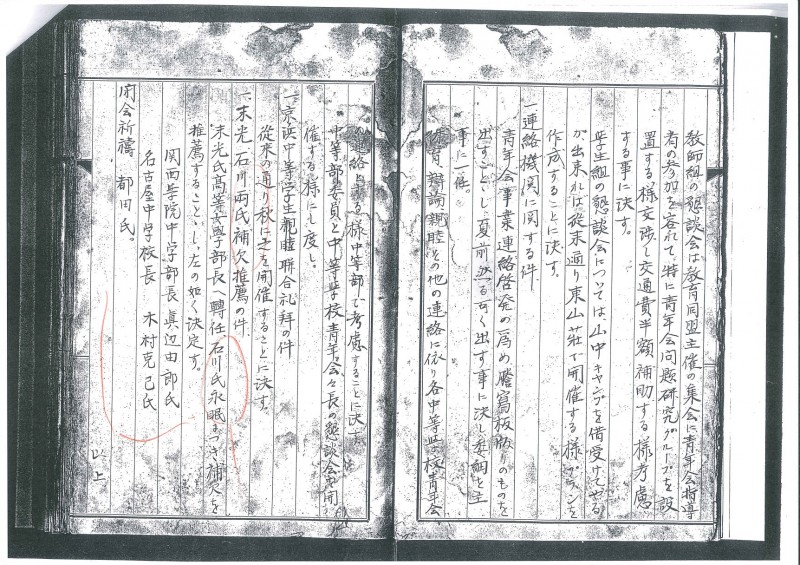 教師組の懇談会は教育同盟主催の集会に青年会指導
者の参加を容れて、特に青年会問題研究グループを設
置する様交渉し交通費半額補助する様考慮
する事に決す。
学生組の懇談会については、山中キャンプを借受けてやる
か出来れば従来通り東山荘で開催する様プランを
作成することに決す。
一、連絡機関に関する件
青年会事業連絡啓発の為め謄写板刷りのものを
出すことゝし、夏前然る可く出す事に決し委細を主
事に一任。
辯論、親睦その他の連絡に依り各中等学校青年会、
連絡を 様中等部で考慮することに決す。
中等部委員と中等学校青年会々長の懇談会を開
催する様にし度し。
一、京浜中等学生親睦聯合礼拝の件
従来の通り秋に之を開催することに決す。
一、末光、石川両氏補欠推薦の件。
末光氏高等女学部長へ轉任 石川氏永眠につき補欠を
推薦することゝし、左の如く決定す。
関西学院中学部長 眞辺由郎氏
名古屋中学校長 木村克己氏
閉会祈禱 都田氏。
以上